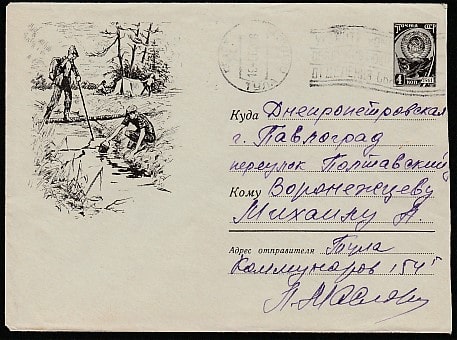 ПОЧТА СССР
4 КОП. 1961
Куда Днепропетровская
г. Павлоград
переулок Полтавский
Кому Воронежцеву
Михаилу А.
Адрес отправителя Тула
Коммунаров 154
П. Маслов